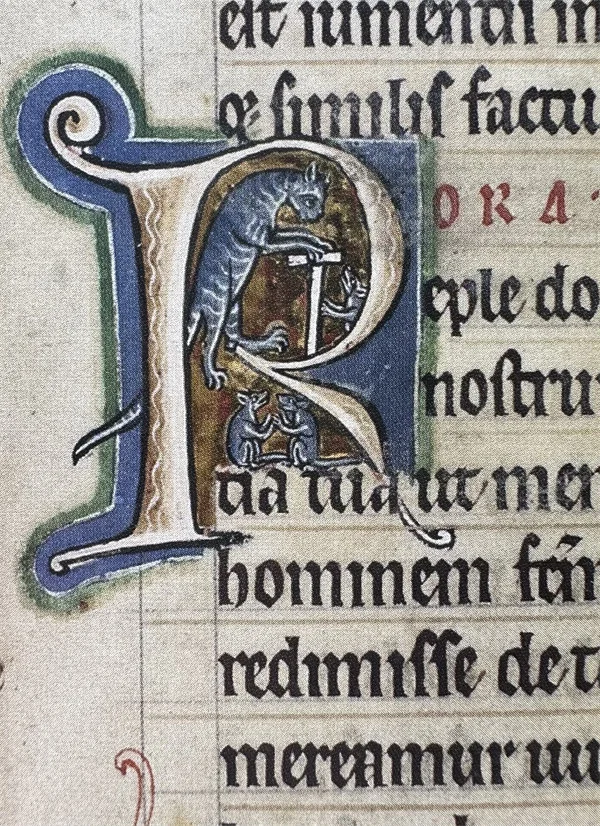 eſt iumenti in
⁊ ſimiliſ factu
ORA
Reple do
noſtru
tia tua ut mer
hominem
redimiſſe de t
mereamur uu